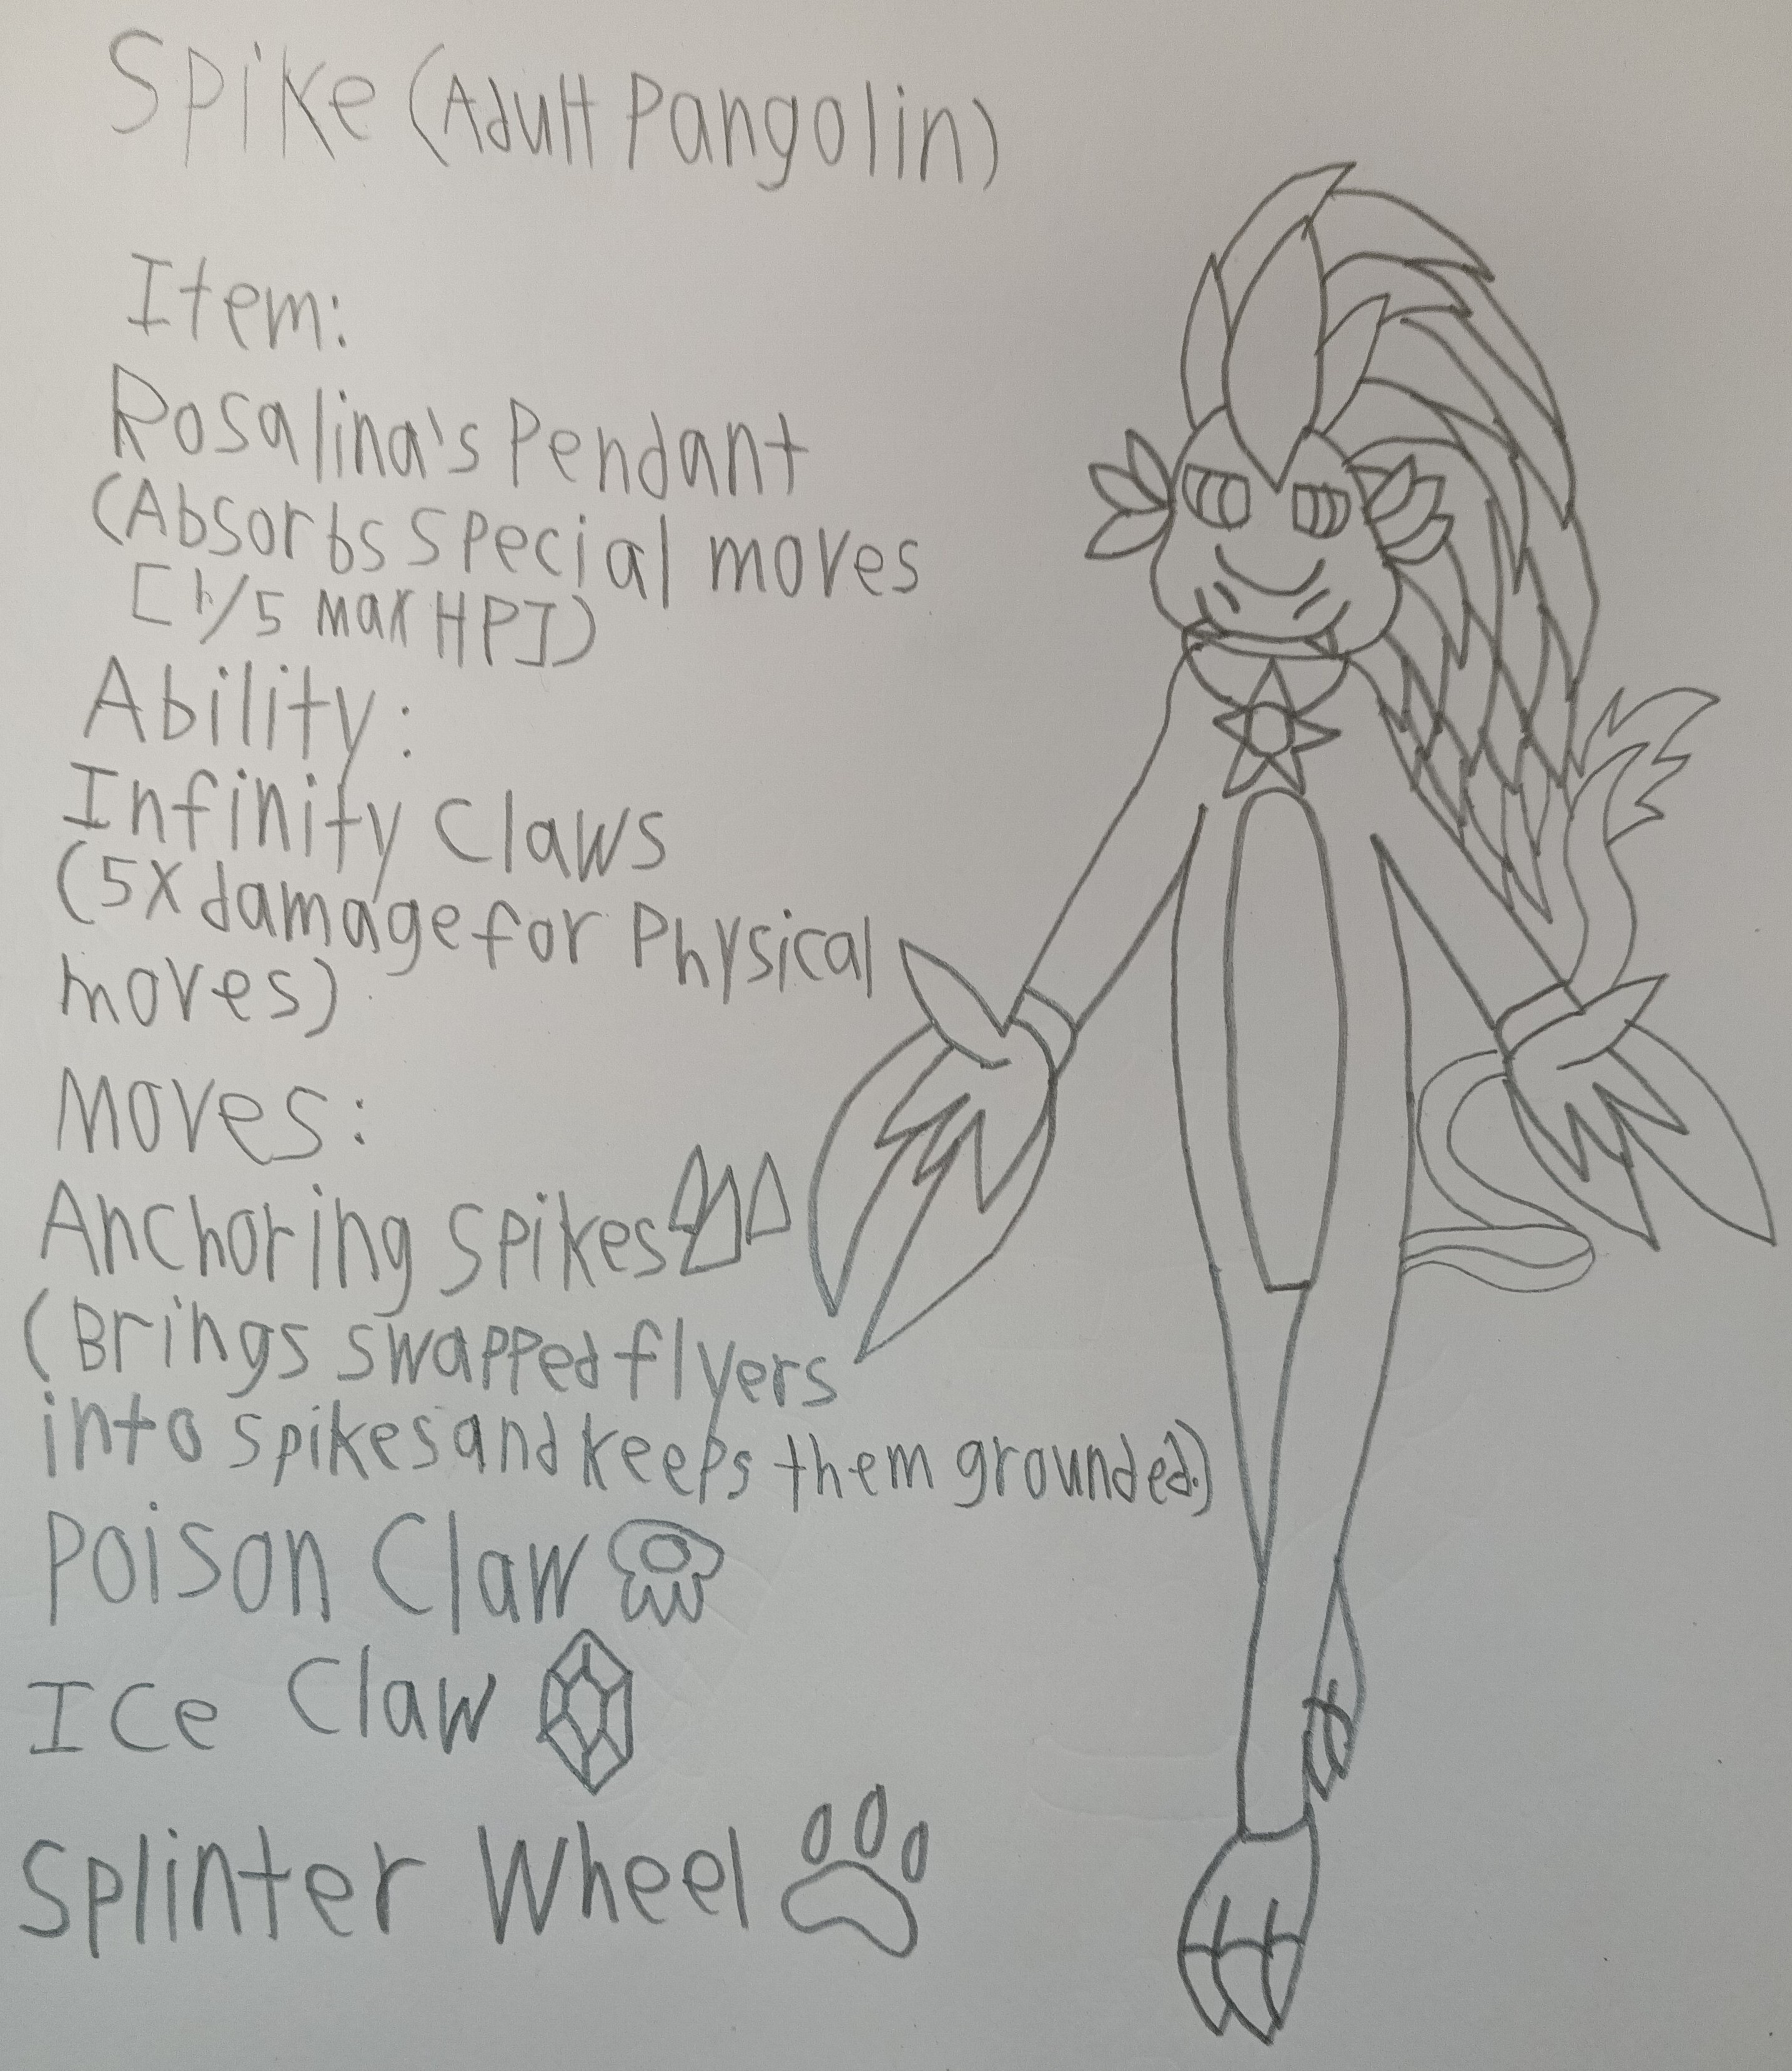 Spike (Adult Pangolin)
Item:
Rosalina's Pendant
(Absorbs special moves
[1/5 max HP])
Ability:
Infinity Claws
(5X damage for Physical
moves)
Moves:
Anchoring Spikes
(Brings swapped flyers
into spikes and keeps them grounded.)
Poison Claw
Ice Claw
Splinter Wheel